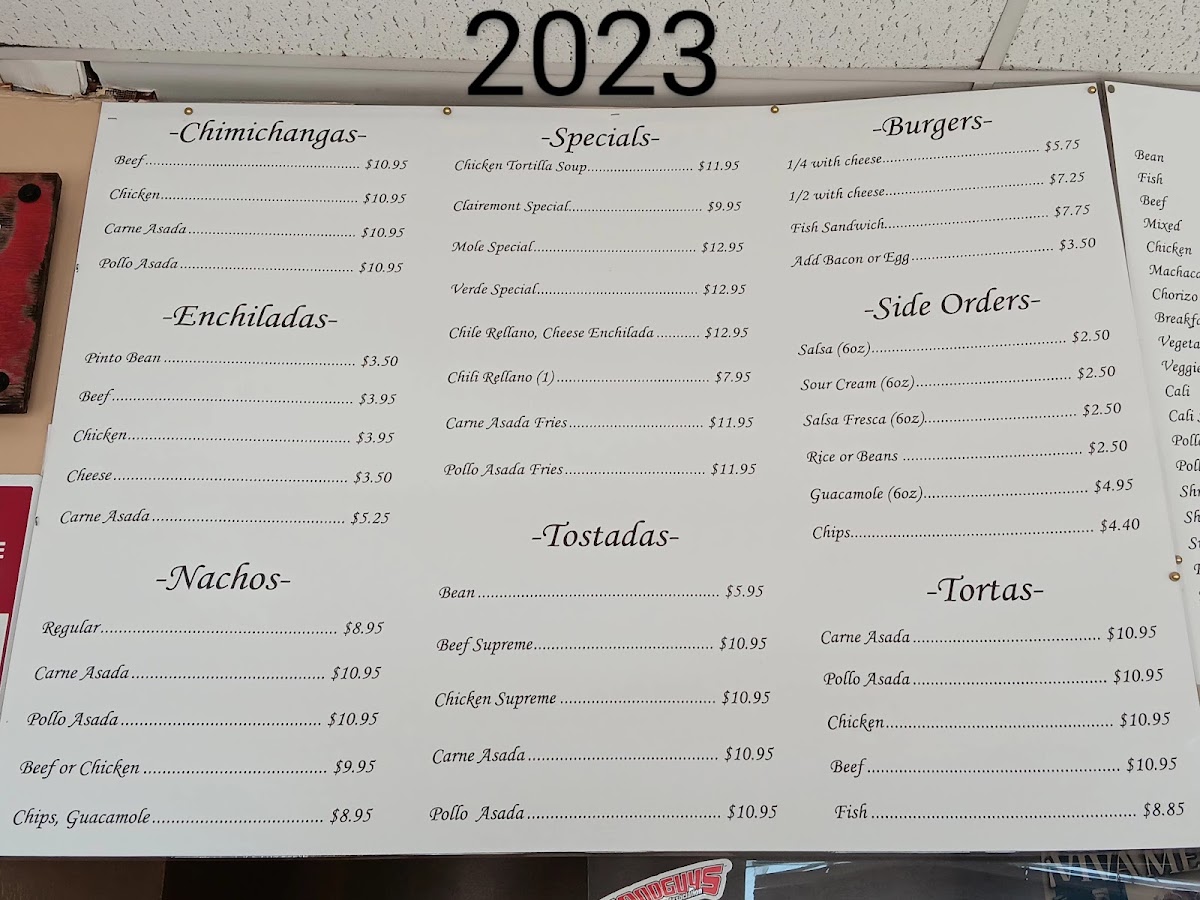 2023
-Chimichangas-
Beef............ $10.95
Chicken............ $10.95
Carne Asada............ $10.95
Pollo Asada............ $10.95
-Enchiladas-
Pinto Bean............ $3.50
Beef............ $3.95
Chicken............ $3.95
Cheese............ $3.50
Carne Asada............ $5.25
-Nachos-
Regular............ $8.95
Carne Asada............ $10.95
Pollo Asada............ $10.95
Beef or Chicken............ $9.95
Chips, Guacamole............ $8.95
-Specials-
Chicken Tortilla Soup............ $11.95
Clairemont Special............ $9.95
Mole Special............ $12.95
Verde Special............ $12.95
Chile Rellano, Cheese Enchilada............ $12.95
Chili Rellano (1)............ $7.95
Carne Asada Fries............ $11.95
Pollo Asada Fries............ $11.95
-Tostadas-
Bean............ $5.95
Beef Supreme............ $10.95
Chicken Supreme............ $10.95
Carne Asada............ $10.95
Pollo Asada............ $10.95
-Burgers-
1/4 with cheese............ $5.75
1/2 with cheese............ $7.25
Fish Sandwich............ $7.75
Add Bacon or Egg............ $3.50
-Side Orders-
Salsa (6oz)............ $2.50
Sour Cream (6oz)............ $2.50
Salsa Fresca (6oz)............ $2.50
Rice or Beans............ $2.50
Guacamole (6oz)............ $4.95
Chips............ $4.40
-Tortas-
Carne Asada............ $10.95
Pollo Asada............ $10.95
Chicken............ $10.95
Beef............ $10.95
Fish............ $8.85
Bean
Fish
Beef
Mixed
Chicken
Machaca
Chorizo
Cali
Cali
VIVA ME